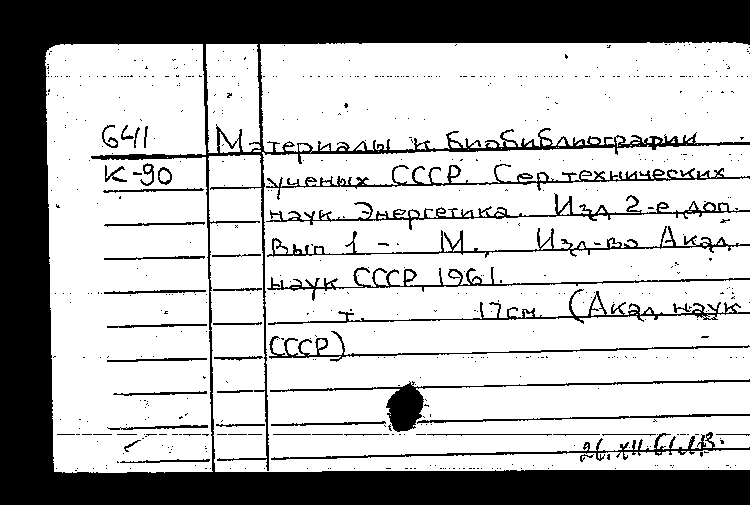 6411 Материалы к биобиблиографии
К-90 ученых СССР. Сер. технических
наук. Энергетика. Изд 2-е, доп.
Вып 1 - М., Изд-во Акад.
наук СССР, 1961.
т. 17см. (Акад. наук
СССР)
26.XII.61.